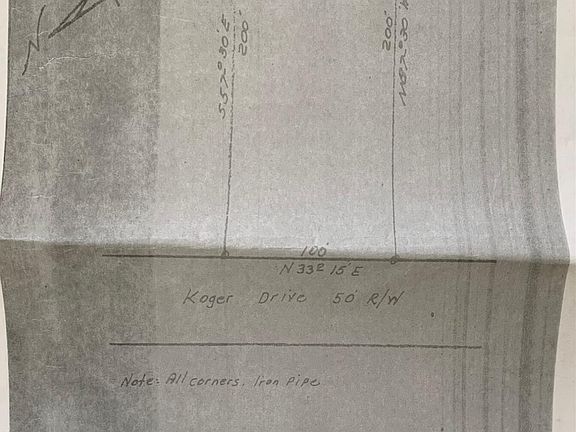 N
S 57° 30' E
200'
200'
100'
N 33° 15' E
Koger Drive 50' R/W
Note: All corners, Iron Pipe